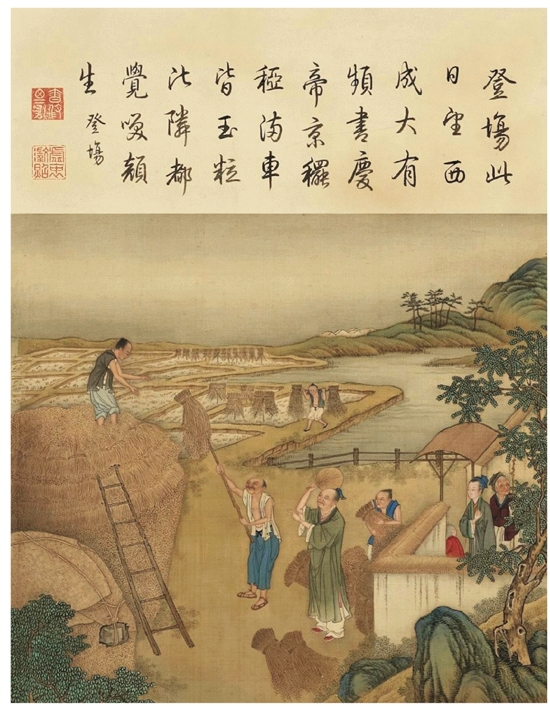 登場此
日望西
成大有
頻書慶
帝京䆉
稏滿車
皆玉粒
比隣都
覺咲顏
生
登場